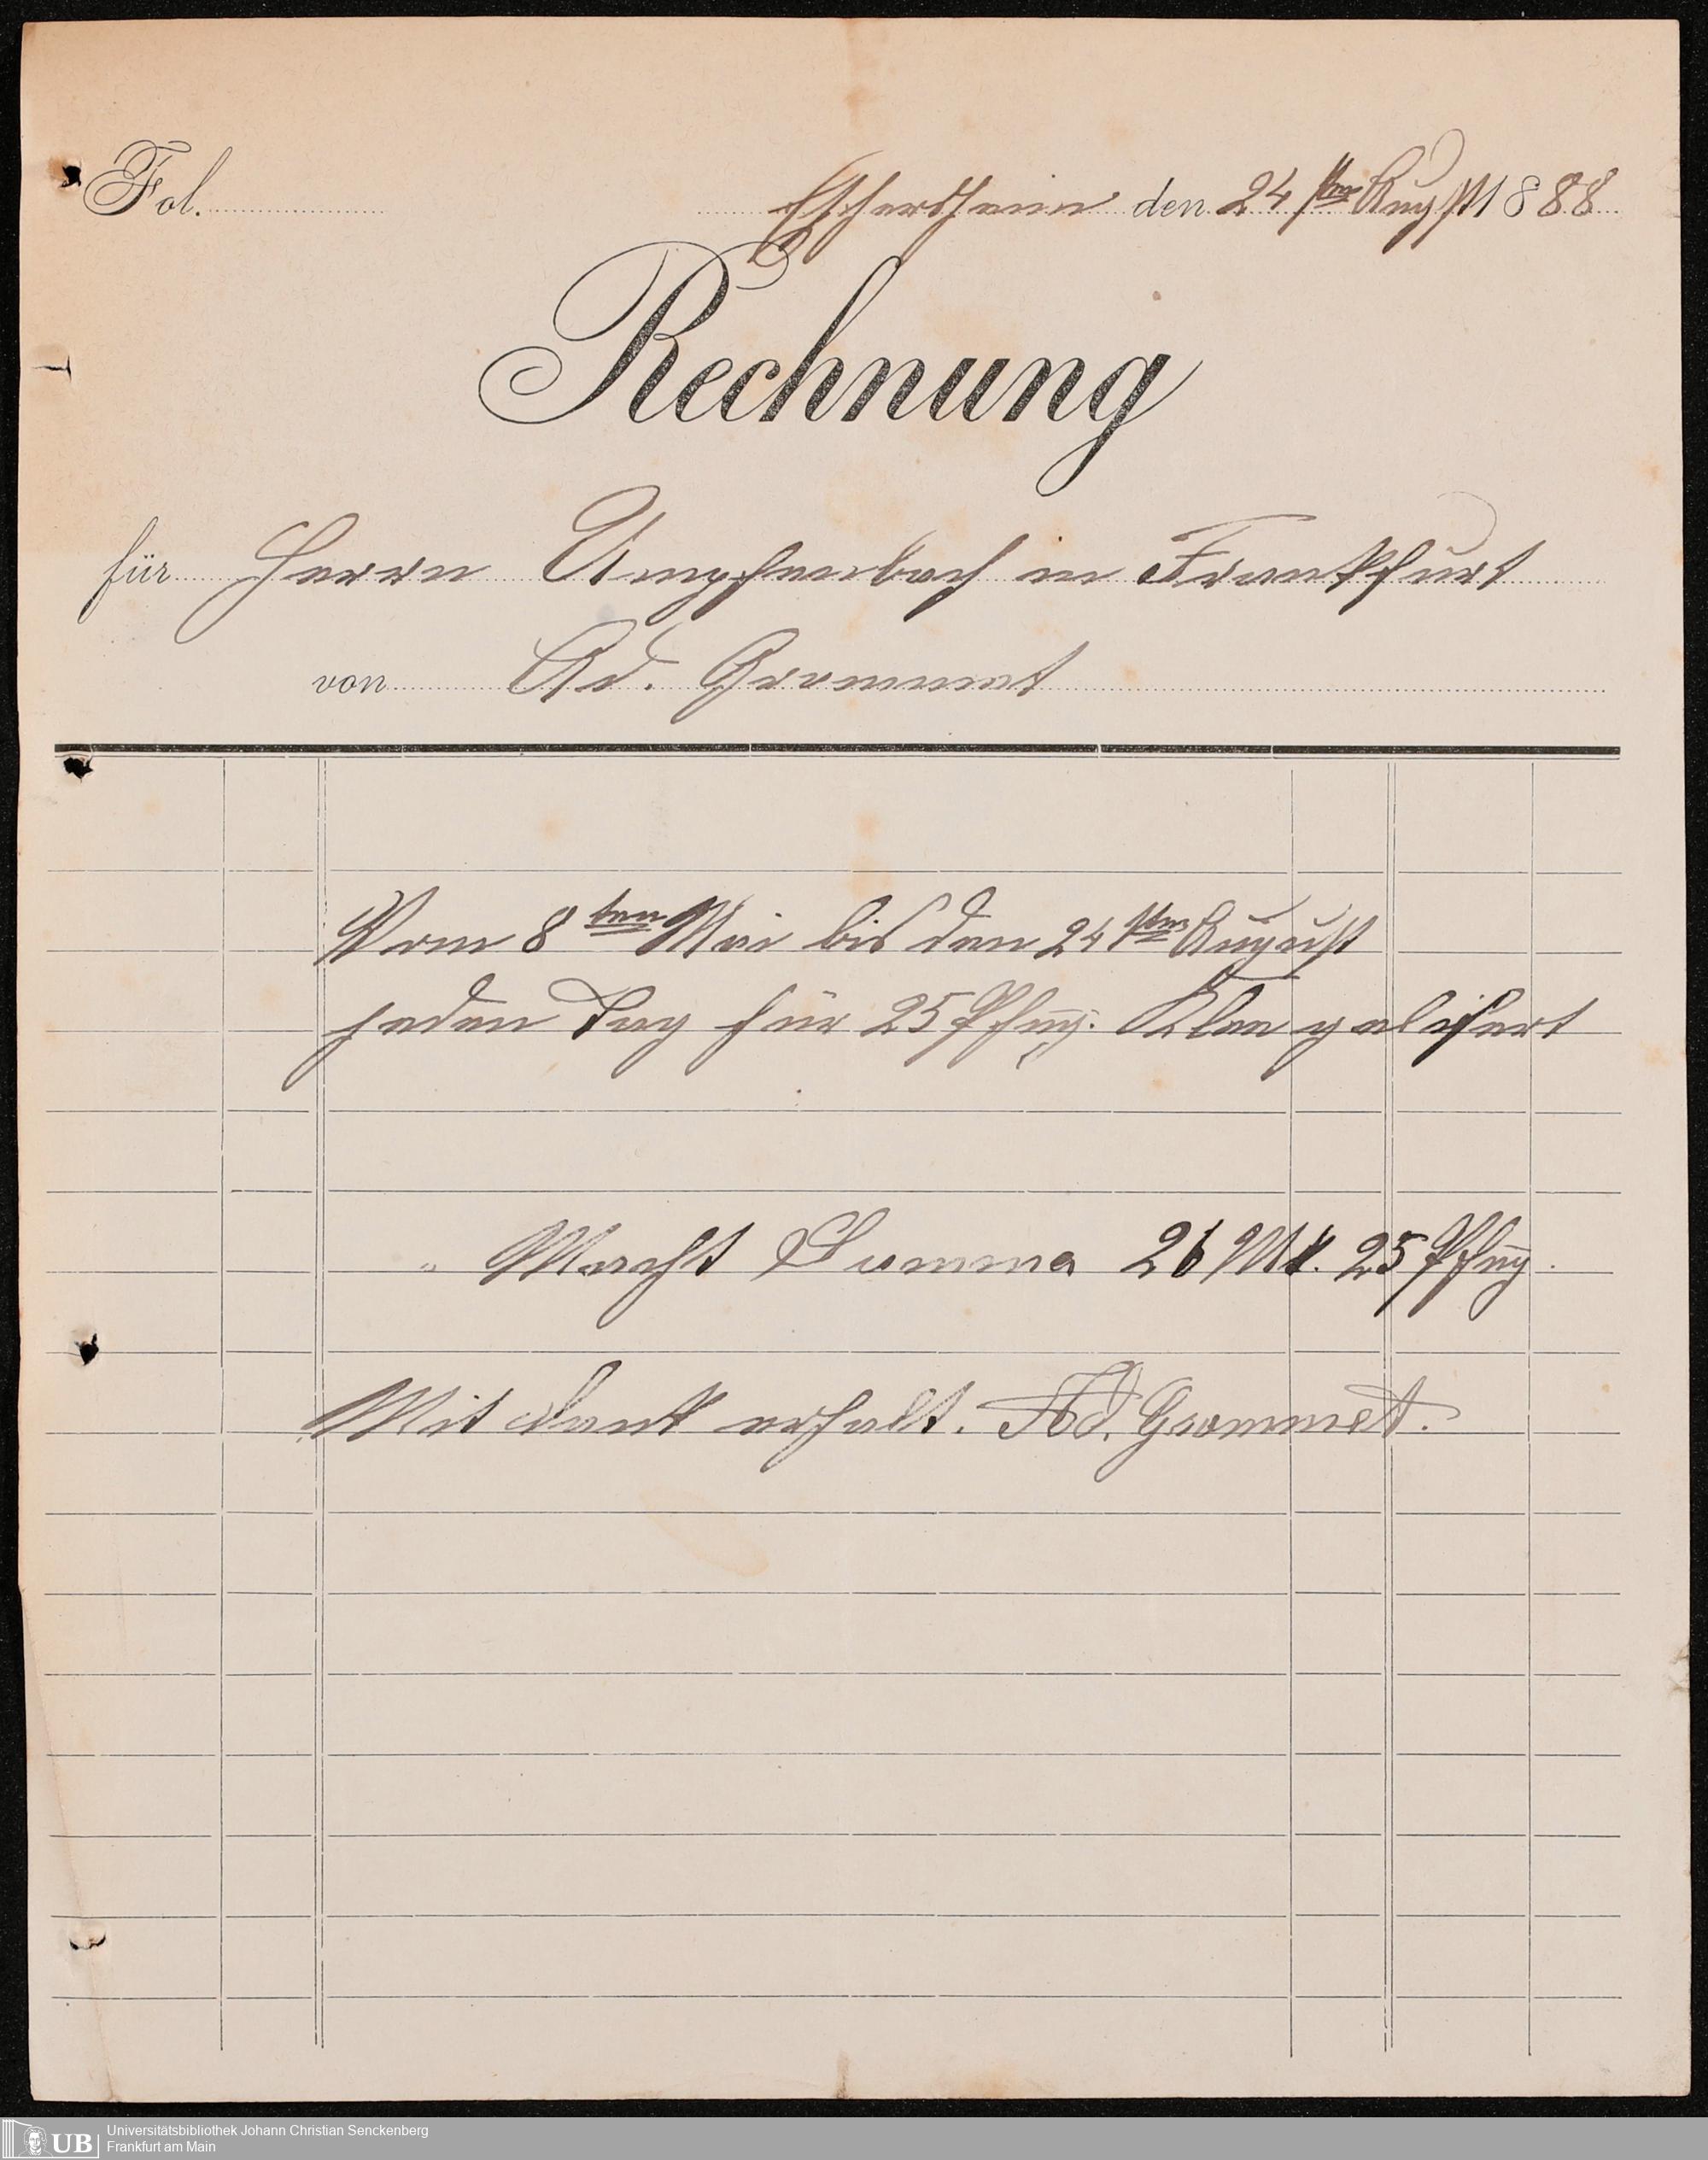 Fol. Eschersheim den 24sten August 1888
Rechnung
für Herrn Umpfenbach in Frankfurt
von Ad. Grommet
Vom 8ten Mai bis den 24sten August
jeden Tag für 25 Pfng. Klee gelifert
" Macht Summa 26 Mk. 25 Pfng.
Mit dank erhalt. Ad. Grommet.
UB
Universitätsbibliothek Johann Christian Senckenberg
Frankfurt am Main